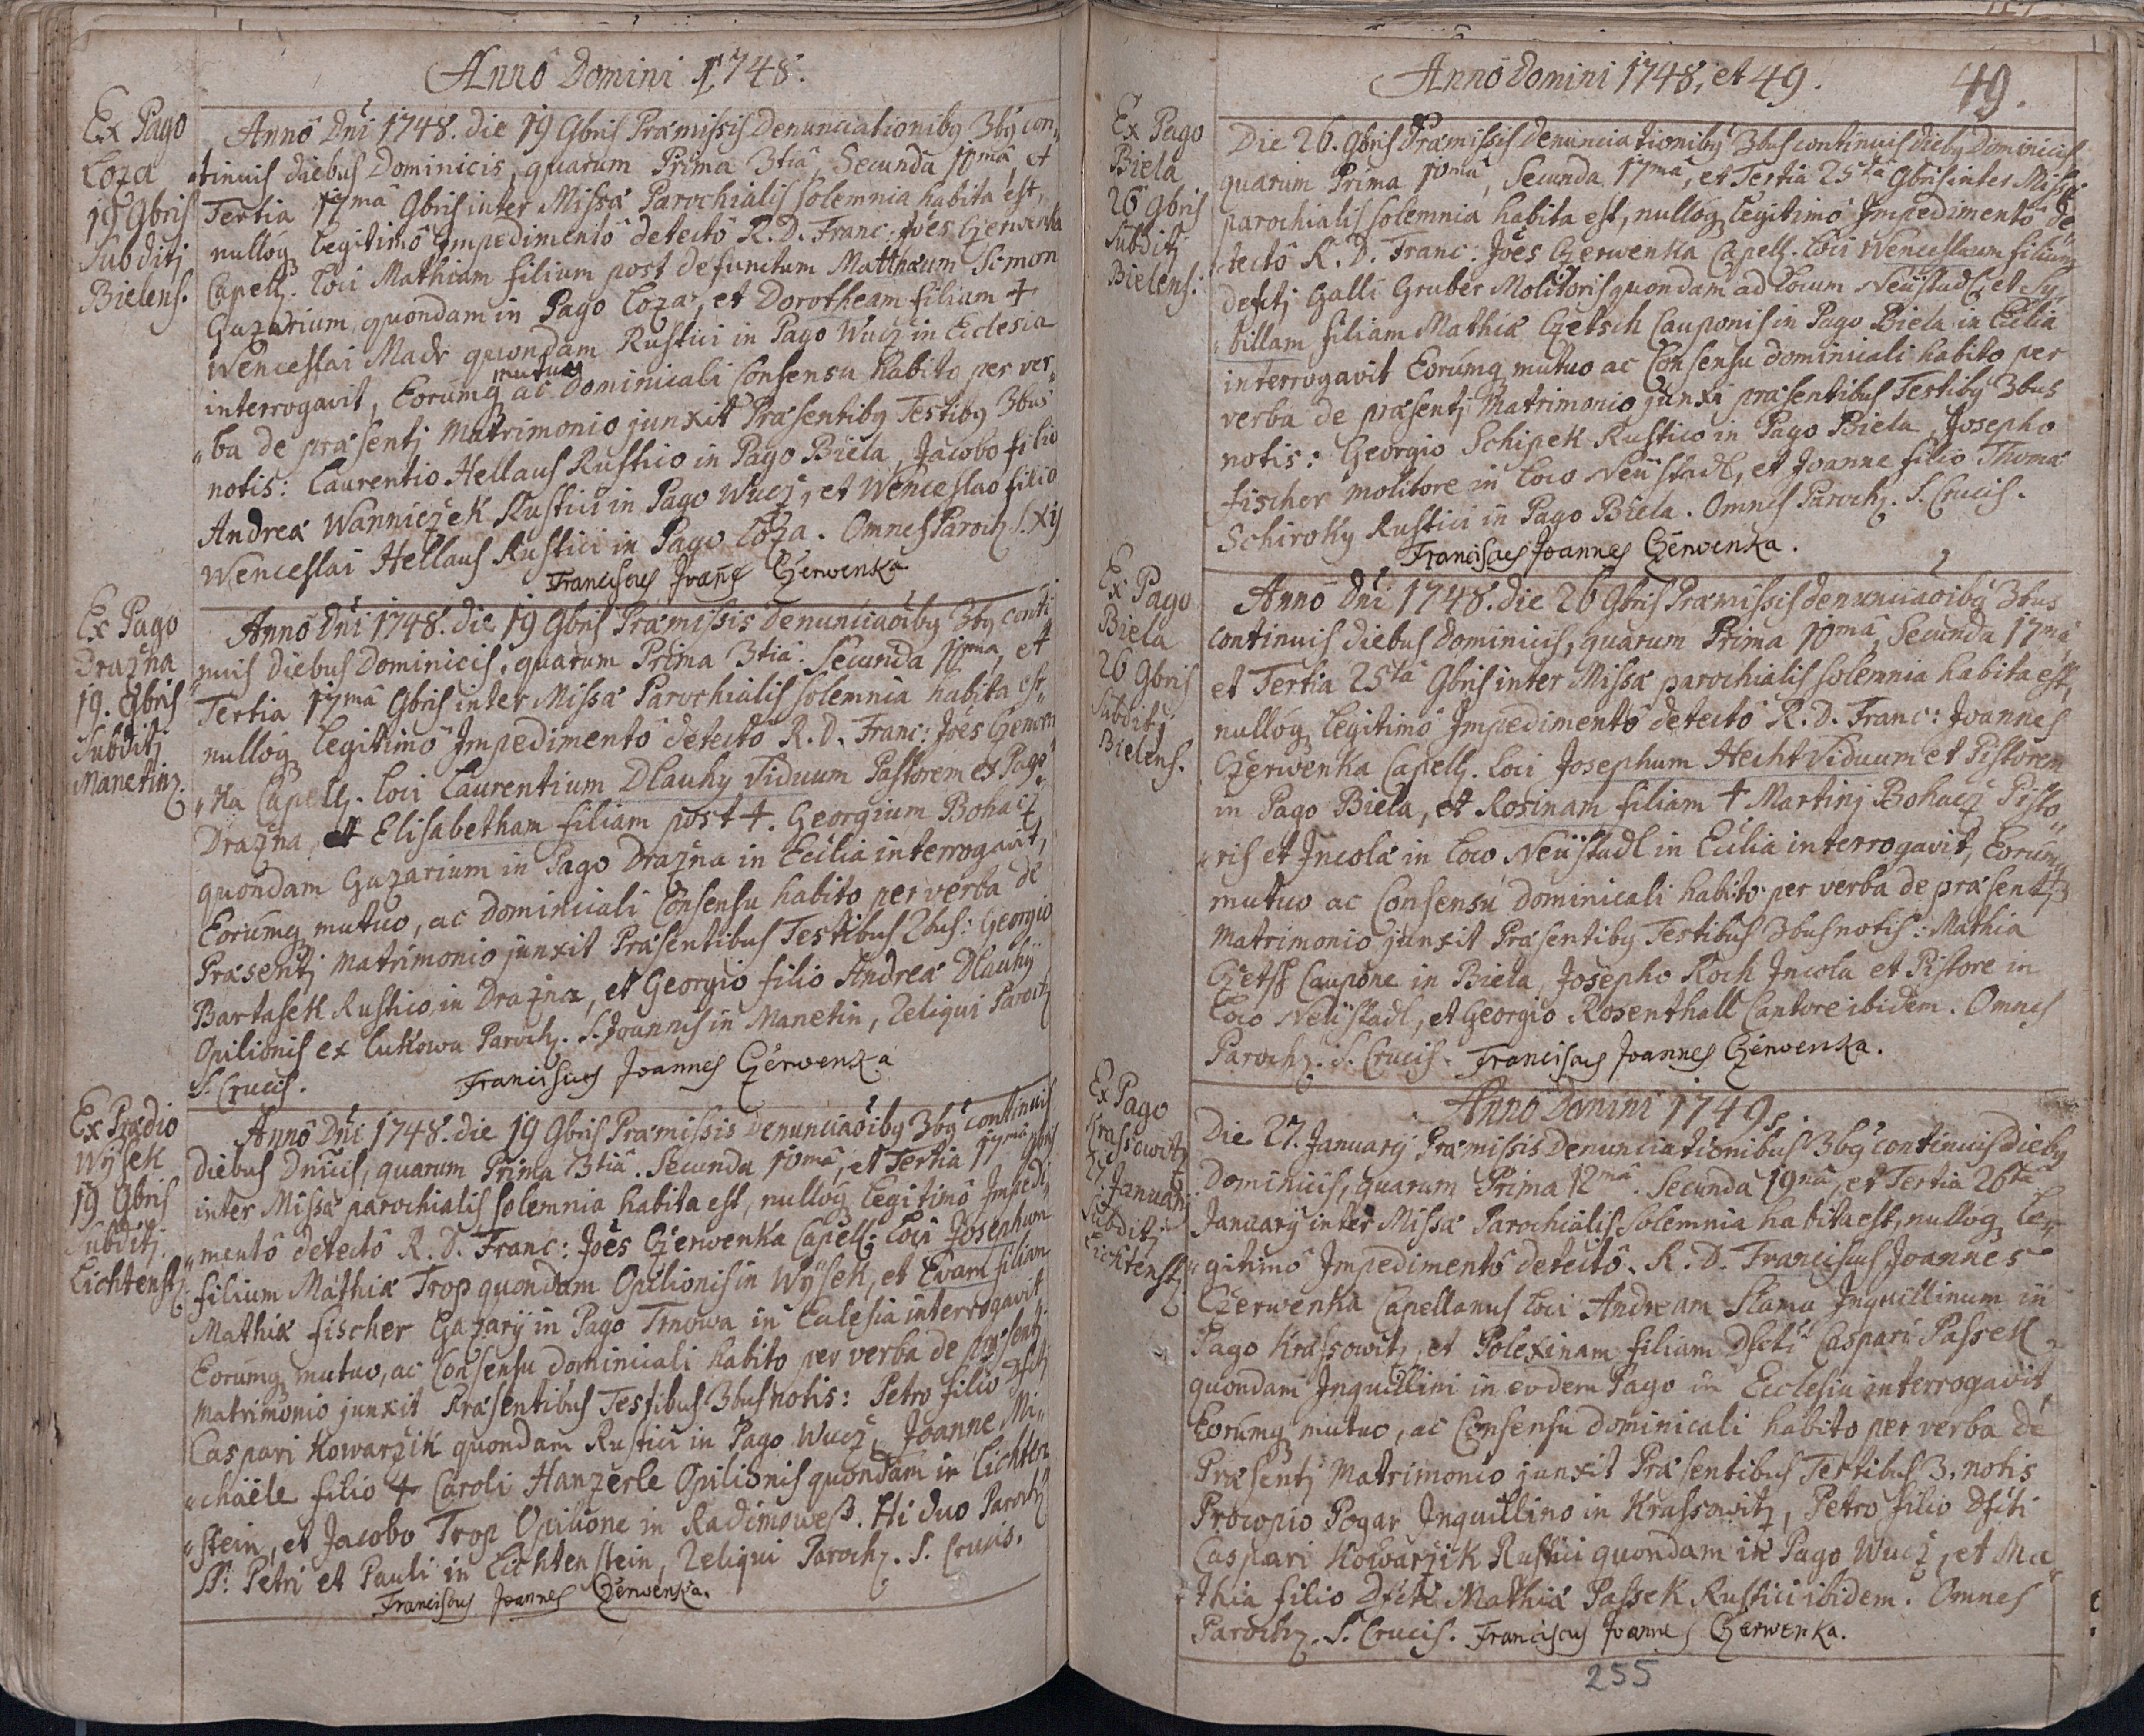 Annô Domini 1748.
Ex Pago
Loza
19 9bris
Subditj
Bielens.
Annô Dn̄i 1748. die 19 9bris Præmissis Denunciationibq 3bq con„
tinuis diebus Dominicis, quarum Prima 3tiâ, Secunda 10mâ, et
Tertia 17mâ 9bris inter Missæ Parochialis solemnia habita est,
nullóq legitimô Impedimentô detectô R. D. Franc: Jōes Czerwenka
Capell. Loci Mathiam filium post defunctum Matthæum Simon
Gazarium quondam in Pago Loza, et Dorotheam filiam †
Wenceslai Madr quondam Rustici in Pago Wucz in Eclesia
interrogavit, Eorúmq mutuo ac Dominicali Consensu habito per ver„
„ba de præsentj Matrimonio junxit Præsentibq Testibq 3bus
notis: Laurentio Hellaus Rustico in Pago Biela, Jacobo filio
Andreæ Wanniczek Rustici in Pago Wucz, et Wenceslao filio
Wenceslai Hellaus Rustici in Pago Loza. Omnes Paroch S. Xij
Franciscus Joan̄es Czerwenka
Ex Pago
Drazna
19. 9bris
Subditj
Manetinz.
Annô Dn̄i 1748. die 19 9bris Præmissis Denunciaōibq 3bq conti
„nuis diebus Dominicis, quarum Prima 3tiâ. Secunda 10mâ, et
Tertia 17mâ 9bris inter Missæ Parochialis solemnia habita est„
nullóq legitimô Impedimentô detectô R. D. Franc: Jōes Czerwen
„ka Capell. loci Laurentium Dlauhy Viduum Pastorem ex Pago
Drazna, et Elisabetham filiam post †. Georgium Bohacz
quondam Gazarium in Pago Drazna in Ecclia interrogavit,
Eorúmq mutuo, ac Dominicali Consensu habito per verba de
Præsentj Matrimonio junxit Præsentibus Testibus 2bus: Georgio
Bartasek Rustico in Drazna, et Georgio filio Andreæ Dlauhÿ
Opilionis ex Lukowa Paroch. S. Joannis in Manetin, Reliqui Paroch
S. Crucis.
Franciscus Joannes Czerwenka
Ex Prædio
Wÿsek
19 9bris
Subditj
Lichtenst.
Annô Dn̄i 1748. die 19 9bris Præmissis Denunciaōibq 3bq continuis
diebus Dn̄icis, quarum Prima 3tiâ. Secunda 10mâ, et Tertia 17mâ 9bris
inter Missæ parochialis solemnia habita est, nullóq legitimô Impedi„
„mentô detectô R. D. Franc: Jōes Czerwenka Capell: loci Josephum
filium Mathiæ Trop quondam Opilionis in Wÿsek, et Evam filiam
Mathiæ Fischer Gazarÿ in Pago Trnowa in Eclesia interrogavit
Eorúmq mutuo, ac Consensu dominicali habito per verba de præsentj
Matrimonio junxit Præsentibus Testibus 3bus notis: Petro filio Dfctj
Caspari Kowarzik quondam Rustici in Pago Wucz, Joanne Mi„
„chaële filio † Caroli Hanzerle Opilionis quondam in Lichten
„stein, et Jacobo Trop Opilione in Radimoweß. Hi duo Paroch
SS: Petri et Pauli in Lichtenstein, Reliqui Paroch. S. Crucis.
Franciscus Joannes Czerwenka.
Annô Domini 1748, et 49.
49.
Ex Pago
Biela
26 9bris
Subditj
Bielens.
Die 26. 9bris Præmissis Denunciationibq 3bus continuis diebq Dominicis
quarum Prima 10mâ, Secunda 17mâ, et Tertia 25tâ 9bris inter Missæ
parochialis solemnia habita est, nullóq legitimô Impedimentô de
tectô R. D. Franc: Jōes Czerwenka Capell. loci Wenceslaum filium
defctj Galli Gruber Molitoris quondam ad Locum Neüstadl, et Sy„
„billam filiam Mathiæ Czetsch Cauponis in Pago Biela in Ecclia
interrogavit Eorúmq mutuo ac Consensu dominicali habito per
verba de præsentj Matrimonio junxi præsentibus Testibq 3bus
notis: Georgio Schipek Rustico in Pago Biela, Josepho
Fischer molitore in Loco Neüstadl, et Joanne filio Thomæ
Schiroky Rustici in Pago Biela. Omnes Paroch. S. Crucis.
Franciscus Joannes Czerwenka.
Ex Pago
Biela
26 9bris
Subditj
Bielens.
Annô Dn̄i 1748. die 26 9bris Præmissis denunciaōibq 3bus
continuis diebus dominicis, quarum Prima 10mâ, Secunda 17mâ,
et Tertia 25tâ 9bris inter Missæ parochialis solemnia habita est,
nullóq legitimô Impedimentô detectô R. D. Franc: Joannes
Czerwenka Capell. loci Josephum Hecht Viduum et Pistorem
in Pago Biela, et Rosinam filiam † Martinj Bohacz Pisto„
„ris et Incolæ in Loco Neüstadl in Ecclia interrogavit, Eorúmq
mutuo ac Consensu dominicali habito per verba de præsentj
Matrimonio junxit Præsentibq Testibus 3bus notis: Mathia
Czetsch Caupone in Biela, Josepho Koch Incola et Pistore in
Loco Neüstadl, et Georgio Rosenthall Cantore ibidem. Omnes
Paroch. S. Crucis. Franciscus Joannes Czerwenka.
Ex Pago
Krassowitz
27. Januarÿ
Subditj
Lichtenst.
Anno Domini 1749.
Die 27. Januarÿ Præmissis Denunciationibus 3bq continuis diebq
Dominicis, quarum Prima 12mâ. Secunda 19nâ, et Tertia 26tâ
Januarÿ inter Missæ Parochialis Solemnia habita est, nullóq Le„
„gitimô Impedimentô detectô. R. D. Franciscus Joannes
Czerwenka Capellanus loci Andream Slama Inquillinum in
Pago Krassowitz, et Polexinam filiam Dfcti Caspari Passek
quondam Inquillini in eodem Pago in Ecclesia interrogavit,
Eorúmq mutuo, ac Consensu dominicali habito per verba de
Præsentj Matrimonio junxit Præsentibus Testibus 3. notis
Procopio Pogar Inquillino in Krassowitz, Petro filio Dfcti
Caspari Kowarzik Rustici quondam in Pago Wucz, et Ma„
thia filio Dfcti Mathiæ Passek Rustici ibidem. Omnes
Paroch. S. Crucis. Franciscus Joannes Czerwenka.
255